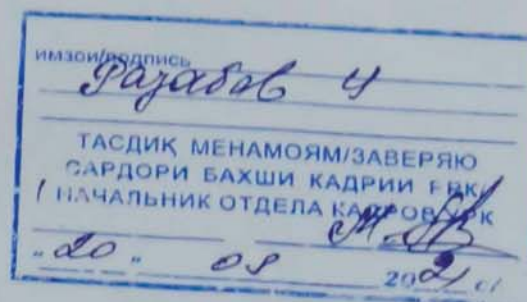 имзои/подпись
Раҷабов У
ТАСДИҚ МЕНАМОЯМ/ЗАВЕРЯЮ
САРДОРИ БАХШИ КАДРИИ
НАЧАЛЬНИК ОТДЕЛА КАДРОВ
"20" 08 2021